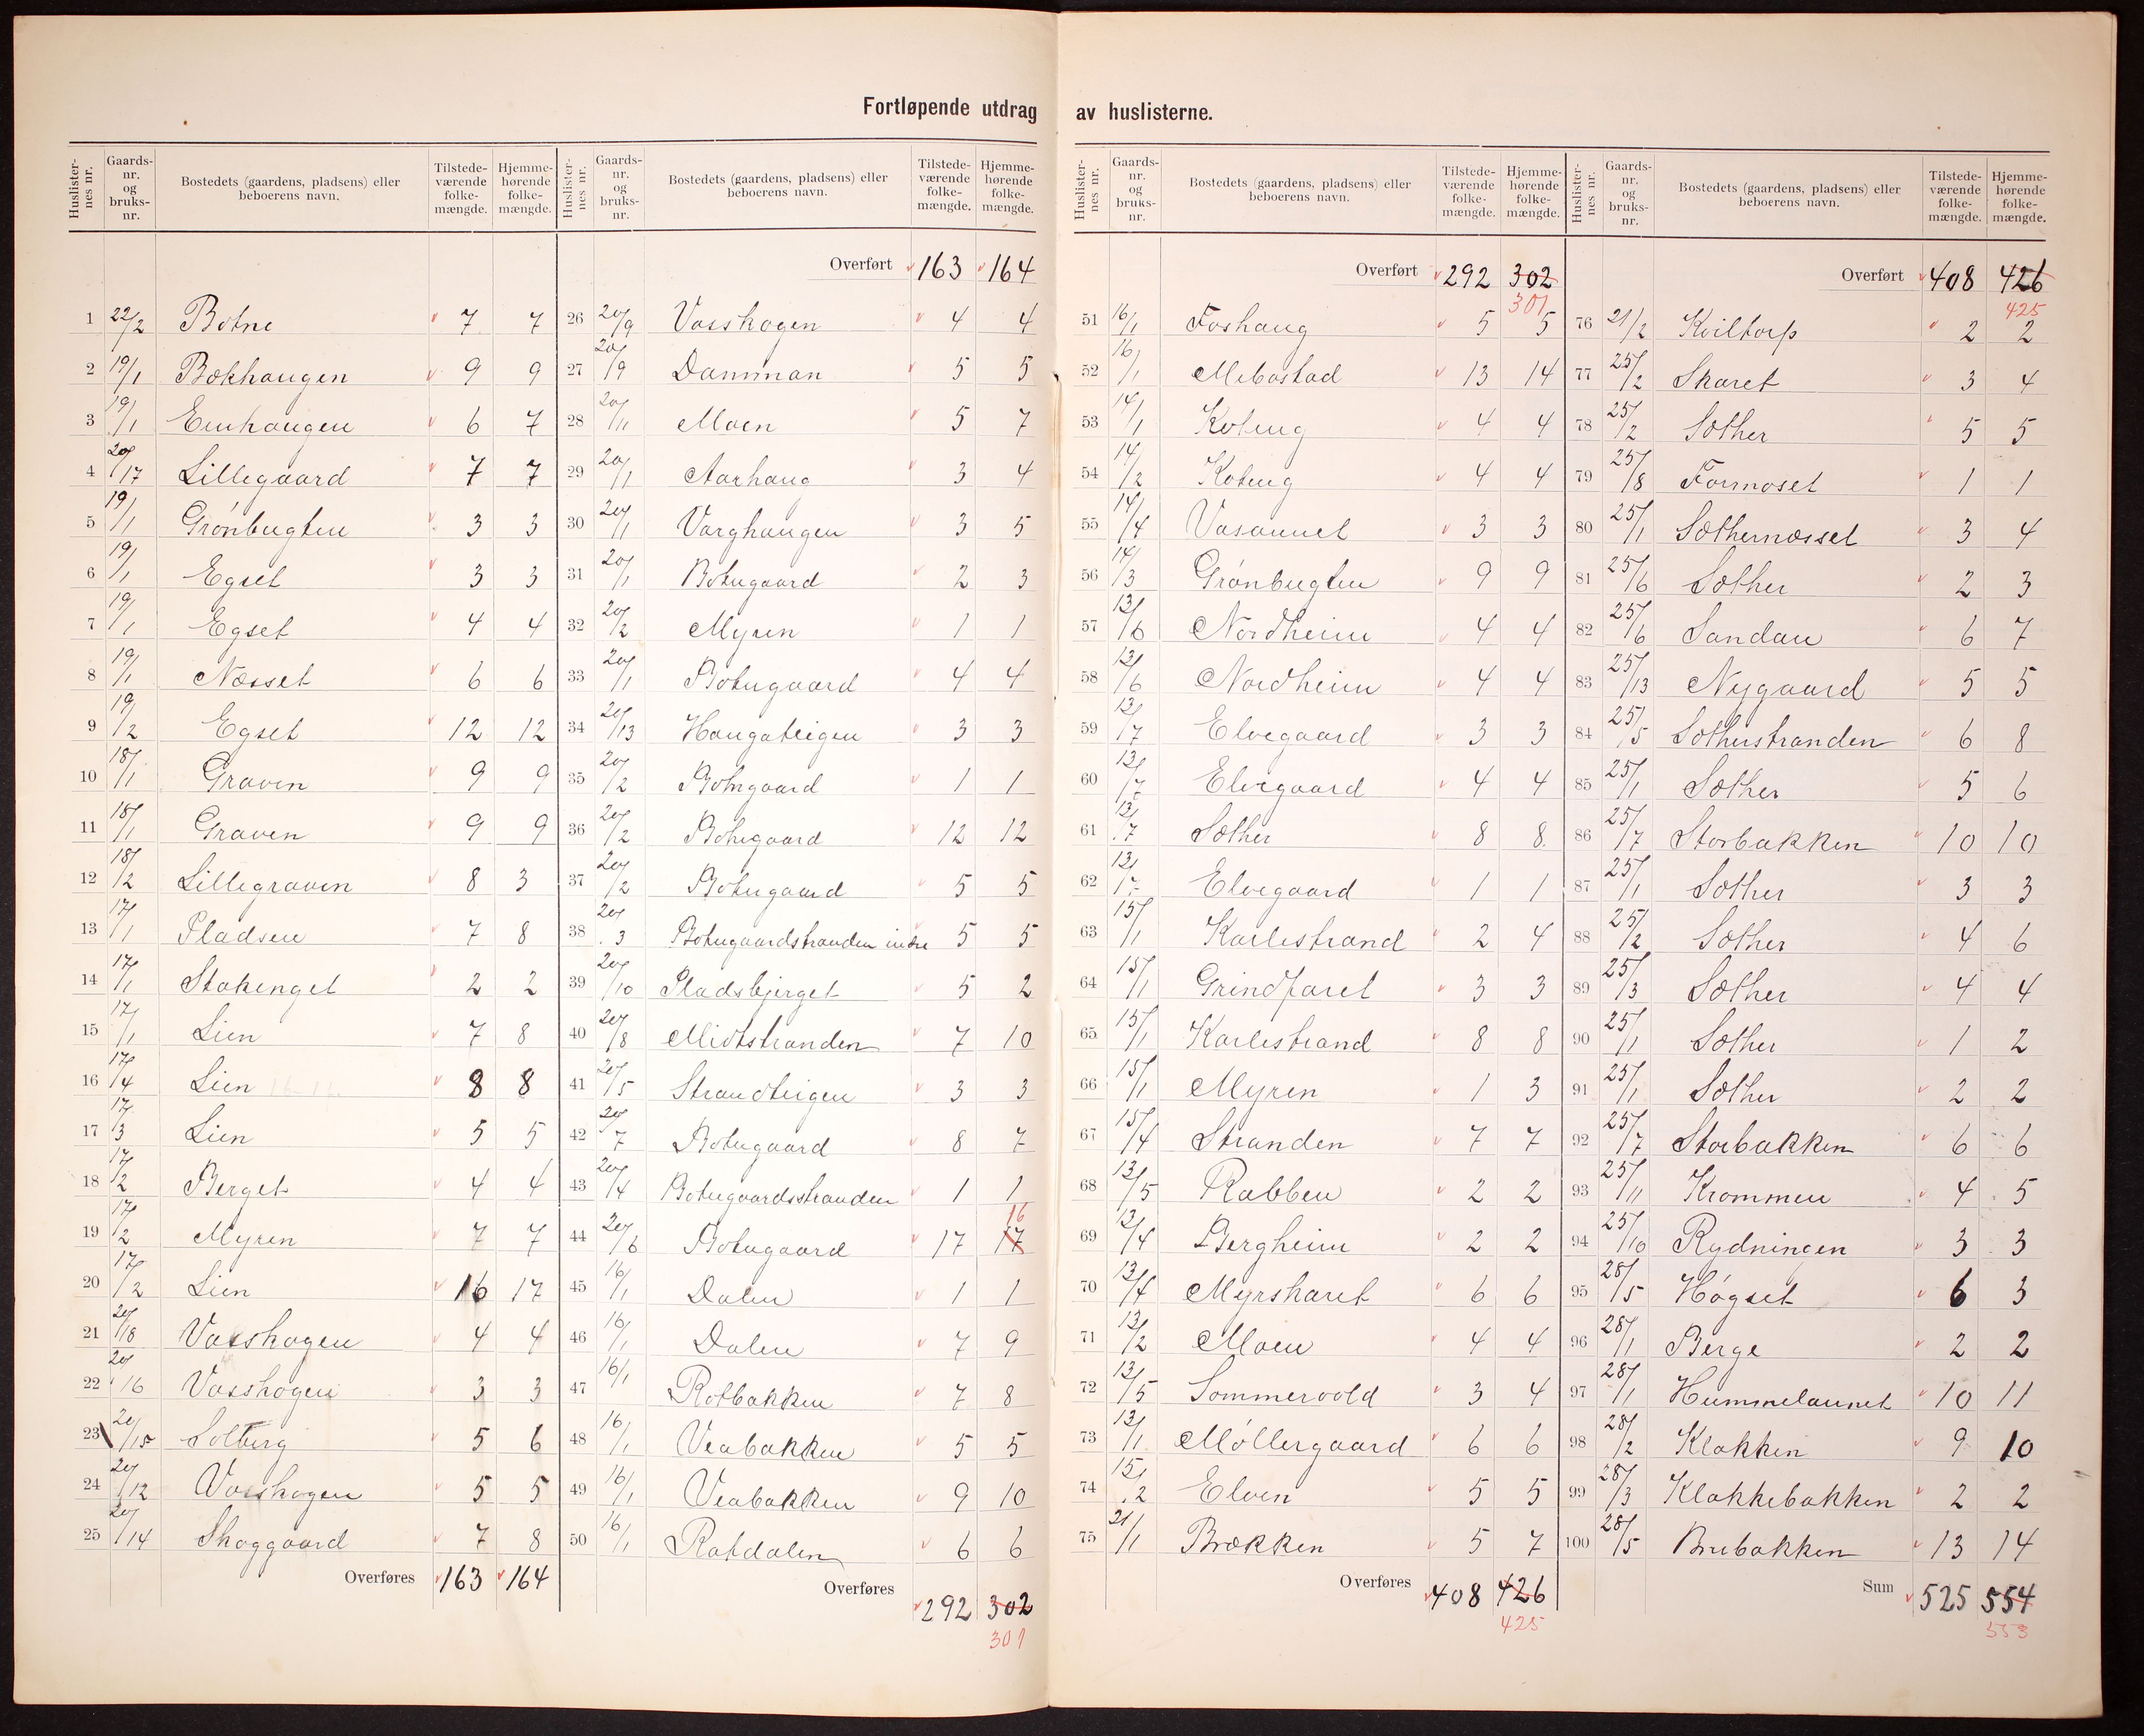 Fortløpende utdrag av huslisterne.
Huslister-nes nr. | Gaards-nr. og bruks-nr. | Bostedets (gaardens, pladsens) eller beboerens navn. | Tilstede-værende folke-mængde. | Hjemme-hørende folke-mængde.
1 22/2 Botne 7 7
2 19/1 Bekhaugen 9 9
3 19/1 Einhaugen 6 7
4 20/17 Lillegaard 7 7
5 19/1 Grønbugten 3 3
6 19/1 Egset 3 3
7 19/1 Egset 4 4
8 19/1 Næsset 6 6
9 19/2 Egset 12 12
10 18/1 Graven 9 9
11 18/1 Graven 9 9
12 18/2 Lillegraven 8 3
13 17/1 Pladsen 7 8
14 17/1 Stokenget 2 2
15 17/1 Lien 7 8
16 17/4 Lien 8 8
17 17/3 Lien 5 5
18 17/2 Berget 4 4
19 17/2 Myren 7 7
20 17/2 Lien 16 17
21 20/18 Vasshagen 4 4
22 20/16 Vasshagen 3 3
23 20/15 Solberg 5 6
24 20/12 Vasshagen 5 5
25 20/14 Skoggaard 7 8
Overføres 163 164
Huslister-nes nr. | Gaards-nr. og bruks-nr. | Bostedets (gaardens, pladsens) eller beboerens navn. | Tilstede-værende folke-mængde. | Hjemme-hørende folke-mængde.
Overført 163 164
26 20/9 Vasshagen 4 4
27 20/9 Damman 5 5
28 20/11 Moen 5 7
29 20/1 Aarhaug 3 4
30 20/1 Varghaugen 3 5
31 20/1 Botngaard 2 3
32 20/2 Myren 1 1
33 20/1 Botngaard 4 4
34 20/13 Haugateigen 3 3
35 20/2 Botngaard 1 1
36 20/2 Botngaard 12 12
37 20/2 Botngaard 5 5
38 20/3 Botngaardstranden indre 5 5
39 20/10 Pladsbjerget 5 2
40 20/8 Midtstranden 7 10
41 20/5 Strandteigen 3 3
42 20/7 Botngaard 8 7
43 20/4 Botngaardsstranden 1 1
44 20/6 Botngaard 17 17 16
45 16/1 Dalen 1 1
46 16/1 Dalen 7 9
47 16/1 Rotbakken 7 8
48 16/1 Veabakken 5 5
49 16/1 Veabakken 9 10
50 16/1 Ratdalen 6 6
Overføres 292 302
301
Huslister-nes nr. | Gaards-nr. og bruks-nr. | Bostedets (gaardens, pladsens) eller beboerens navn. | Tilstede-værende folke-mængde. | Hjemme-hørende folke-mængde.
Overført 292 302
301
51 16/1 Foshaug 5 5
52 16/1 Mebostad 13 14
53 14/1 Koteng 4 4
54 14/2 Koteng 4 4
55 14/4 Vasaunet 3 3
56 14/3 Grønbugten 9 9
57 13/6 Nordheim 4 4
58 13/6 Nordheim 4 4
59 13/7 Elvegaard 3 3
60 13/7 Elvegaard 4 4
61 13/7 Sæther 8 8
62 13/7 Elvegaard 1 1
63 15/1 Karlestrand 2 4
64 15/1 Grindfaret 3 3
65 15/1 Karlestrand 8 8
66 15/1 Myren 1 3
67 15/4 Stranden 7 7
68 13/5 Rabben 2 2
69 13/4 Bergheim 2 2
70 13/4 Myrskaret 6 6
71 13/2 Moen 4 4
72 13/5 Sommervold 3 4
73 13/1 Møllergaard 6 6
74 15/2 Elven 5 5
75 21/1 Brækken 5 7
Overføres 408 426
425
Huslister-nes nr. | Gaards-nr. og bruks-nr. | Bostedets (gaardens, pladsens) eller beboerens navn. | Tilstede-værende folke-mængde. | Hjemme-hørende folke-mængde.
Overført 408 426
425
76 21/2 Kviltorp 2 2
77 25/2 Skaret 3 4
78 25/2 Sæther 5 5
79 25/8 Formoset 1 1
80 25/1 Sæthernæsset 3 4
81 25/6 Sæther 2 3
82 25/6 Sandau 6 7
83 25/13 Nygaard 5 5
84 25/5 Sætherstranden 6 8
85 25/1 Sæther 5 6
86 25/7 Storbakken 10 10
87 25/1 Sæther 3 3
88 25/2 Sæther 4 6
89 25/3 Sæther 4 4
90 25/1 Sæther 1 2
91 25/1 Sæther 2 2
92 25/7 Storbakken 6 6
93 25/11 Krommen 4 5
94 25/10 Rydningen 3 3
95 28/5 Høgset 6 3
96 28/1 Berge 2 2
97 28/1 Hummelaunet 10 11
98 28/2 Klakken 9 10
99 28/3 Klakkebakken 2 2
100 28/5 Brubakken 13 14
Sum 525 554
553